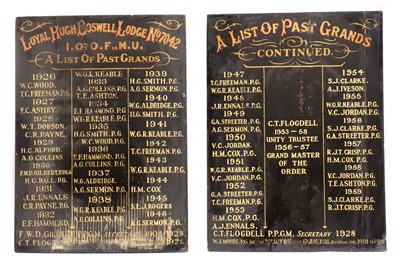 LOYAL HUGH BOSWELL LODGE No 7042
I.O.O.F., M.U.
A LIST OF PAST GRANDS
1926
W.C.WOOD.
T.C.FREEMAN.P.G.
1927
F.C.ASHBY.
1928
W.T.DOBSON.
C.R.PAYNE.
1929
H.C.ALFORD.
A.G.COLLINS
1930
F.W.D.GILBERT.P.P.G.M.
H.C.BALL.P.G.
1931
J.R.ENNALS
C.R.PAYNE.P.G.
1932
E.F.HAMMOND
W.G.R.KEABLE
1933
A.G.COLLINS.P.G.
T.E.ASHTON.
1934
E.F.HAMMOND.P.G.
W.G.R.KEABLE.P.G.
1935
H.G.SMITH.
W.C.WOOD.P.G.
1936
E.F.HAMMOND.P.G.
A.G.COLLINS.P.G.
1937
W.G.ALDRIDGE.
A.G.SERMON.P.G.
1938
W.G.R.KEABLE.P.G.
A.G.COLLINS.P.G.
1939
H.G.SMITH.P.G.
A.G.SERMON.P.G.
1940
W.G.ALDRIDGE.P.G.
H.G.SMITH.P.G.
1941
W.G.R.KEABLE.P.G.
1942
T.C.FREEMAN.P.G.
1943
W.G.R.KEABLE.P.G.
1944
H.M.COX
1945
S.E.J.ROGERS
1946
A.G.SERMON.P.G.
C.T.FLOGDELL
1928.
A LIST OF PAST GRANDS
CONTINUED.
1947
T.C.FREEMAN.P.G.
W.G.R.KEABLE.P.G.
1948
J.R.ENNALS.P.G.
1949
G.A.STREETER.P.G.
A.G.SERMON.P.G.
1950
V.C.JORDAN.
H.M.COX.P.G.
1951
W.G.R.KEABLE.P.G.
V.C.JORDAN.P.G.
1952
G.A.STREETER.P.G.
T.C.FREEMAN.P.G.
1953
H.M.COX.P.G.
A.J.ENNALS.
C.T.FLOGDELL
1953-68
UNITY TRUSTEE
1956-57
GRAND MASTER
OF THE
ORDER
1954
S.J.CLARKE.
A.J.IVESON.
1955
W.G.R.KEABLE.P.G.
V.C.JORDAN.P.G.
1956
S.J.CLARKE.P.G.
G.A.STREETER.P.G.
1957
R.J.T.CRISP.
H.M.COX.P.G.
1958
V.C.JORDAN.P.G.
T.E.ASHTON.P.G.
1959
S.J.CLARKE.P.G.
R.J.T.CRISP.P.G.
C.T.FLOGDELL P.P.G.M. SECRETARY 1928